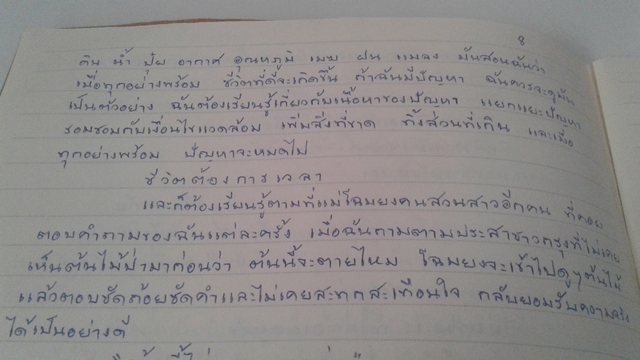 8
ดิน น้ำ ปุ๋ย อากาศ อุณหภูมิ เมฆ ฝน แมลง มันสอนฉันว่า
เมื่อทุกอย่างพร้อม ชีวิตที่ดีจะเกิดขึ้น ถ้าฉันมีปัญหา ฉันควรจะดูมัน
เป็นตัวอย่าง ฉันต้องเรียนรู้เกี่ยวกับเนื้อหาของปัญหา แยกแยะปัญหา
รอมชอมกับเงื่อนไขแวดล้อม เพิ่มสิ่งที่ขาด ทิ้งส่วนที่เกิน และเมื่อ
ทุกอย่างพร้อม ปัญหาจะหมดไป
ชีวิตต้องการเวลา
และก็ต้องเรียนรู้ตามที่แม่โฉมยงคนสวนสาวอีกคน ที่คอย
ตอบคำถามของฉันแต่ละครั้ง เมื่อฉันถามตามประสาชาวกรุงที่ไม่เคย
เห็นต้นไม้ป่ามาก่อนว่า ต้นนี้จะตายไหม โฉมยงจะเข้าไปดูๆต้นไม้
แล้วตอบชัดถ้อยชัดคำและไม่เคยสะทกสะเทือนใจ กลับยอมรับความจริง
ได้เป็นอย่างดี